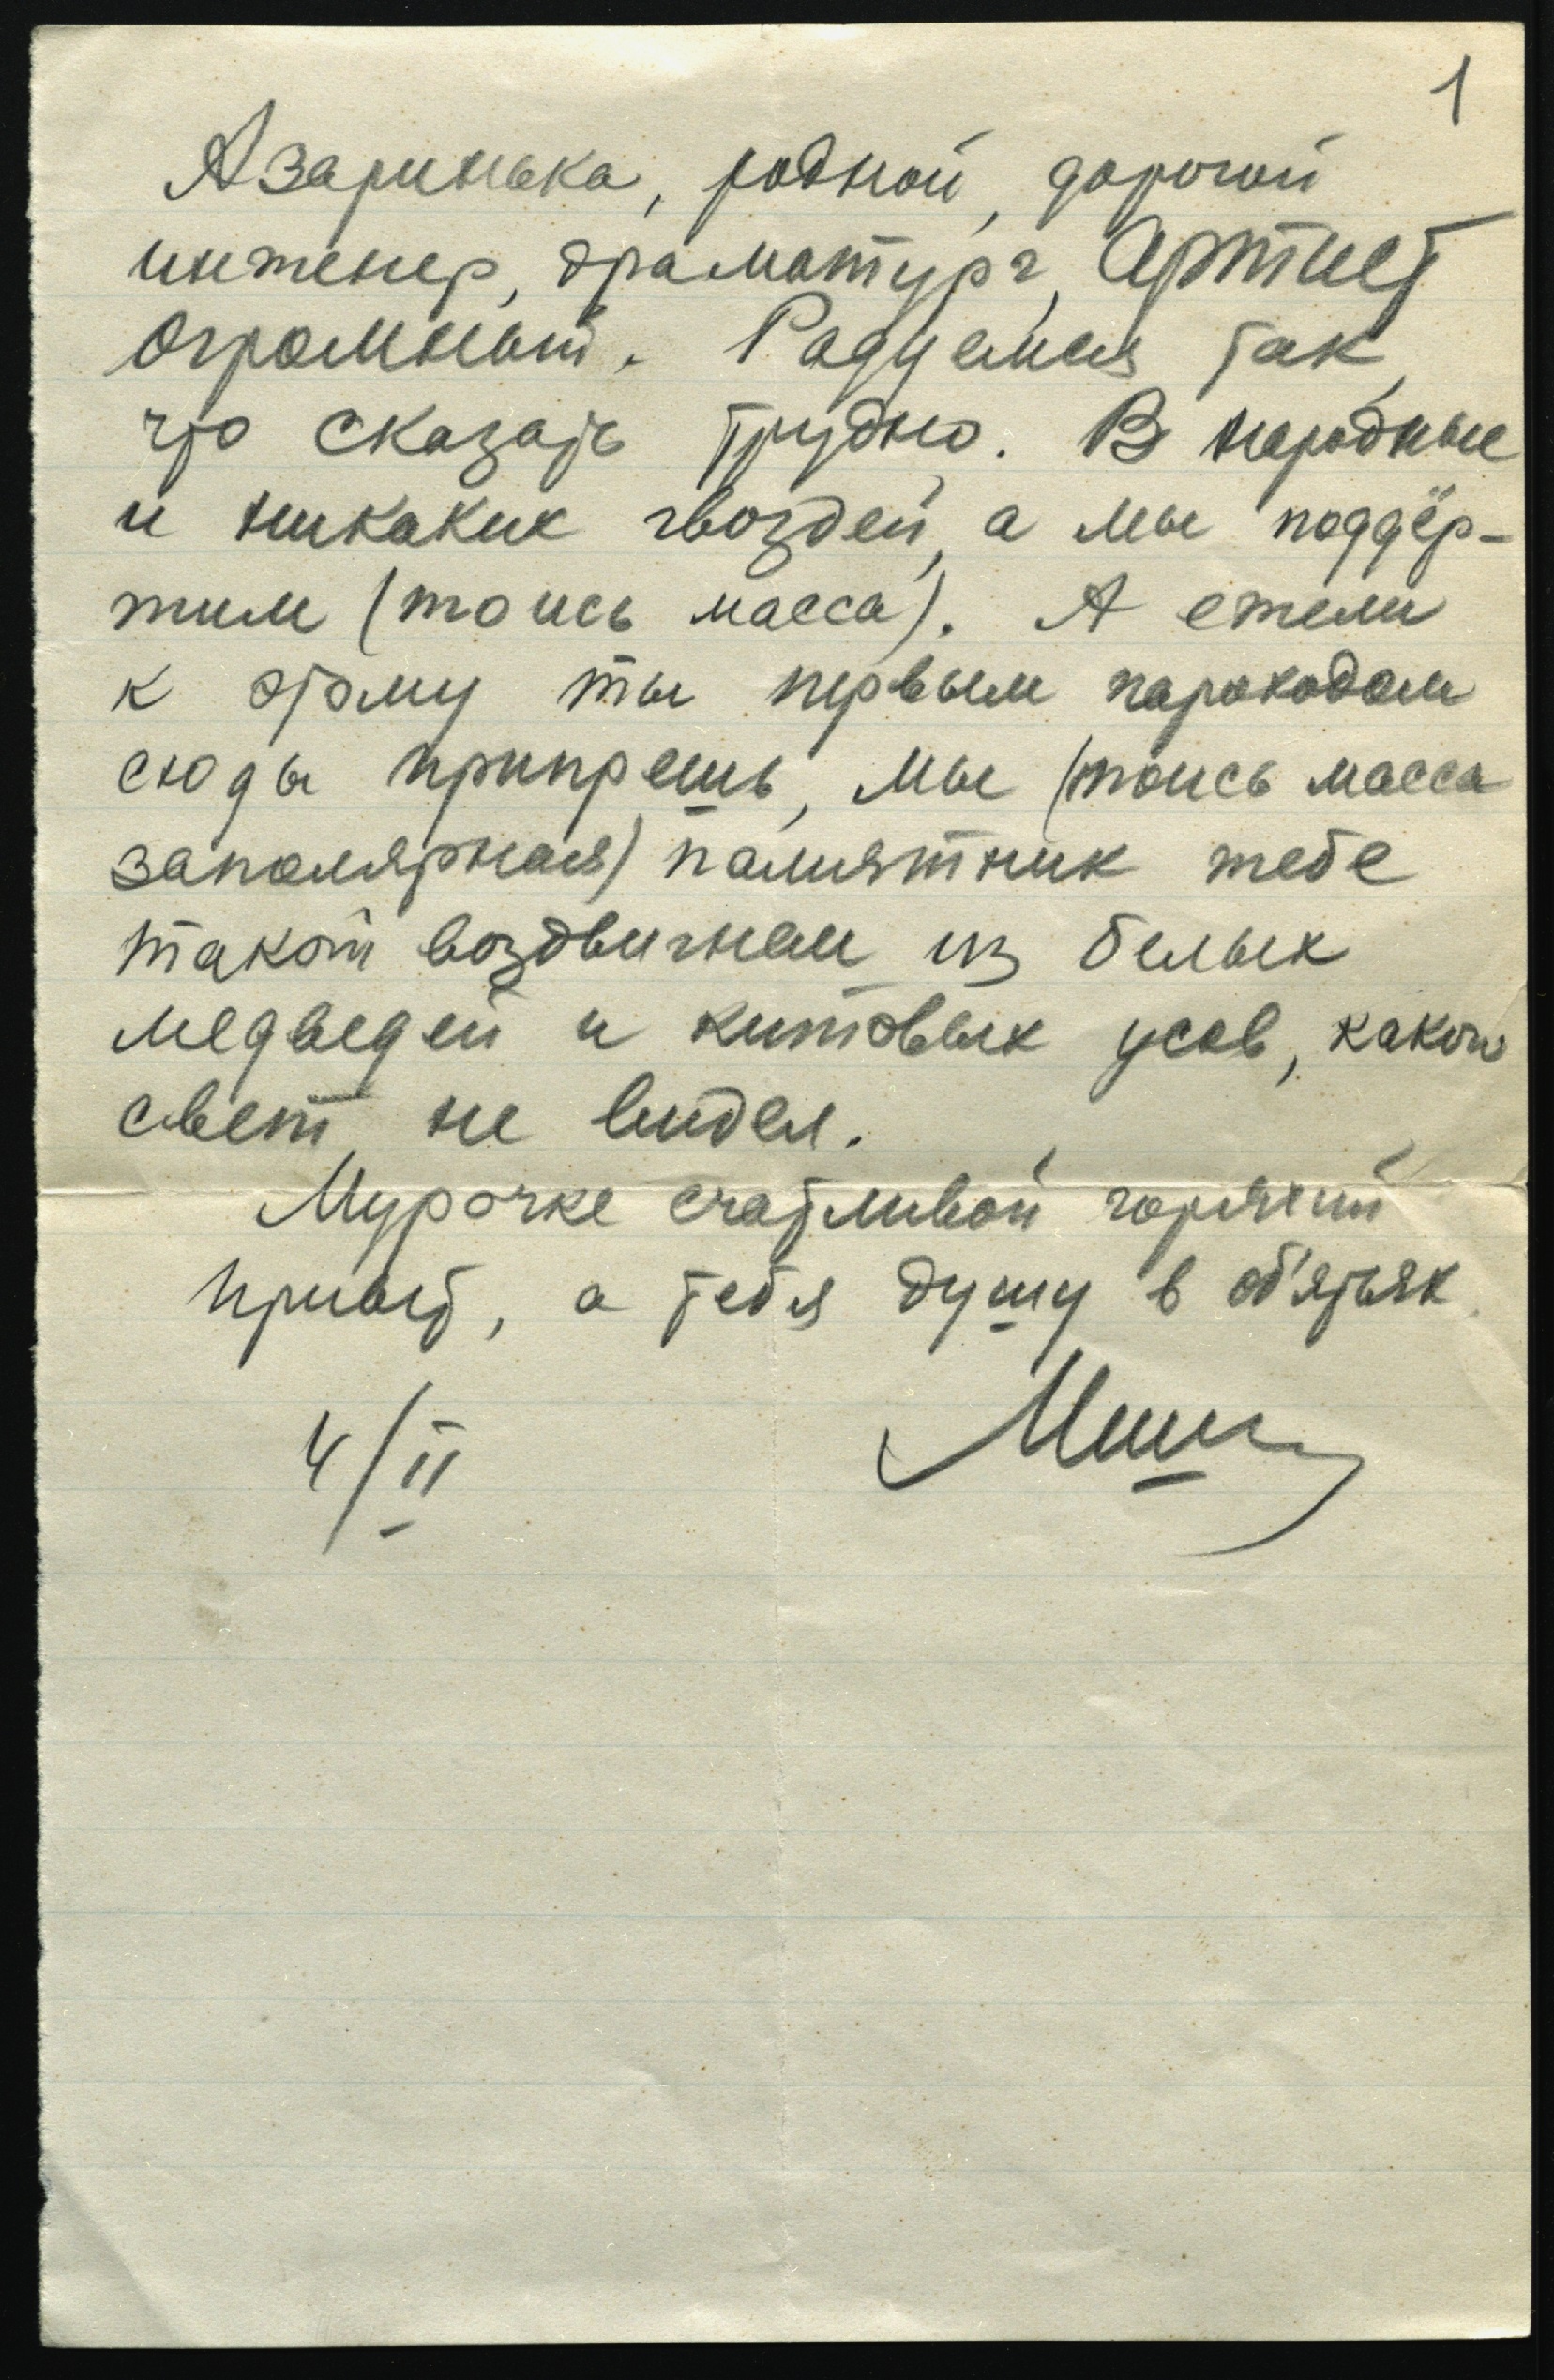 1
Азаринька, родной, дорогой
инженер, драматург, Артист
огромный. Радуемся так,
что сказать трудно. В народные
и никаких гвоздей, а мы поддёр-
жим (тоись масса). А ежели
к этому ты первым пароходом
сюды припрешь, мы (тоись масса
заполярная) памятник тебе
такой воздвигнем из белых
медведей и китовых усов, какой
свет не видел.
Мурочке счастливой горячий
привет, а тебя душу в об'ятьях
4/II Миша